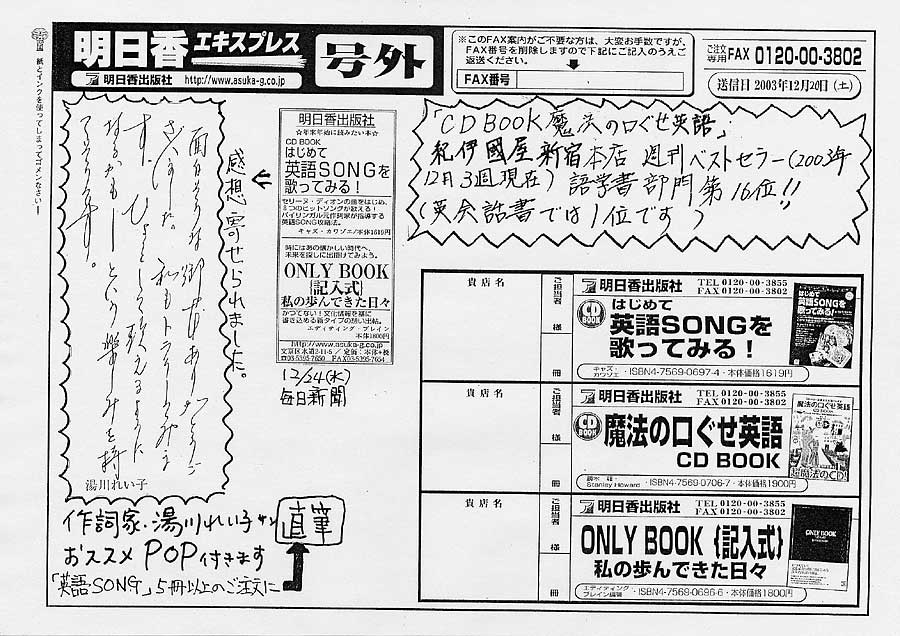 紙とインクを使ってしまってゴメンなさい！
明日香エキスプレス
明日香出版社 http://www.asuka-g.co.jp
号外
※このFAX案内がご不要な方は、大変お手数ですが、
FAX番号を削除しますので下記にご記入のうえご
返送ください。
FAX番号
ご注文専用FAX 0120-00-3802
送信日 2003年12月20日（土）
「CD BOOK 魔法の口ぐせ英語」
紀伊國屋新宿本店 週刊ベストセラー(2003年
12月3週現在) 語学書部門第16位!!
(英会話書では1位です)
感想寄せられました。
面白そうな御本ありがとうご
ざいました。私もトライしてみま
す。ひょっとして歌えるように
なるかも という楽しみを持
湯川れい子
明日香出版社
☆年末年始に読みたい本☆
CD BOOK
はじめて
英語SONGを
歌ってみる！
セリーヌ・ディオンの曲をはじめ、
8つのヒットソングが歌える！
バイリンガル元作詞家が指導する
英語SONG攻略法。
キャズ・カワゾエ/本体1619円
時にはあの懐かしい時代へ、
未来を探しに出掛けてみよう。
ONLY BOOK
{記入式}
私の歩んできた日々
かつてない！文化情報を基に
書き込める新タイプの想い出帖。
エディティング・ブレイン
本体1800円
http://www.asuka-g.co.jp
文京区水道2-11-5 / 定価：本体+税
☎03-5395-7650 FAX03-5395-7654
12/24(水)
毎日新聞
作詞家・湯川れい子サン 直筆
おススメPOP付きます
「英語SONG」5冊以上のご注文に
貴店名
ご担当者
様
冊
明日香出版社 TEL 0120-00-3855
FAX 0120-00-3802
CD BOOK
はじめて
英語SONGを
歌ってみる！
キャズ・カワゾエ ・ISBN4-7569-0697-4・本体価格1619円
貴店名
ご担当者
様
冊
明日香出版社 TEL 0120-00-3855
FAX 0120-00-3802
CD BOOK
魔法の口ぐせ英語
CD BOOK
Stanley Howard ・ISBN4-7569-0706-7・本体価格1900円
魔法の口ぐせ英語
CD BOOK
超魔法のCD!
貴店名
ご担当者
様
冊
明日香出版社 TEL 0120-00-3855
FAX 0120-00-3802
ONLY BOOK {記入式}
私の歩んできた日々
エディティング・ブレイン編著 ・ISBN4-7569-0696-6・本体価格1800円
ONLY BOOK